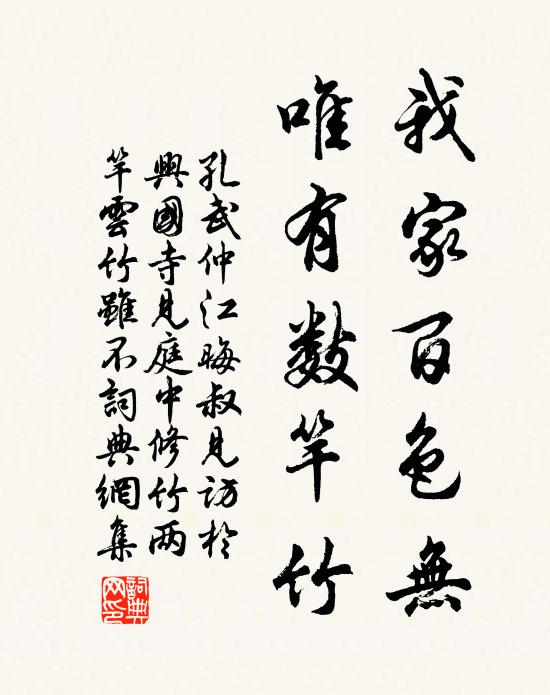 我家百色無
唯有数竿竹
孔武仲江晦叔見訪於
興國寺見庭中修竹两
竿雲竹雖不詞典網集
詞典網印